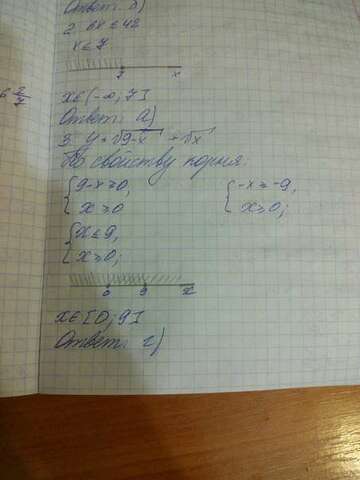 Ответ: б)
2. 6x ≤ 42
x ≤ 7
7 x
x∈(-∞; 7]
Ответ: а)
3. y = √9-x + √x
По свойству корня:
{9-x ≥ 0, {-x ≥ -9,
{x ≥ 0 {x ≥ 0;
{x ≤ 9,
{x ≥ 0;
0 9 x
x∈[0; 9]
Ответ: г)